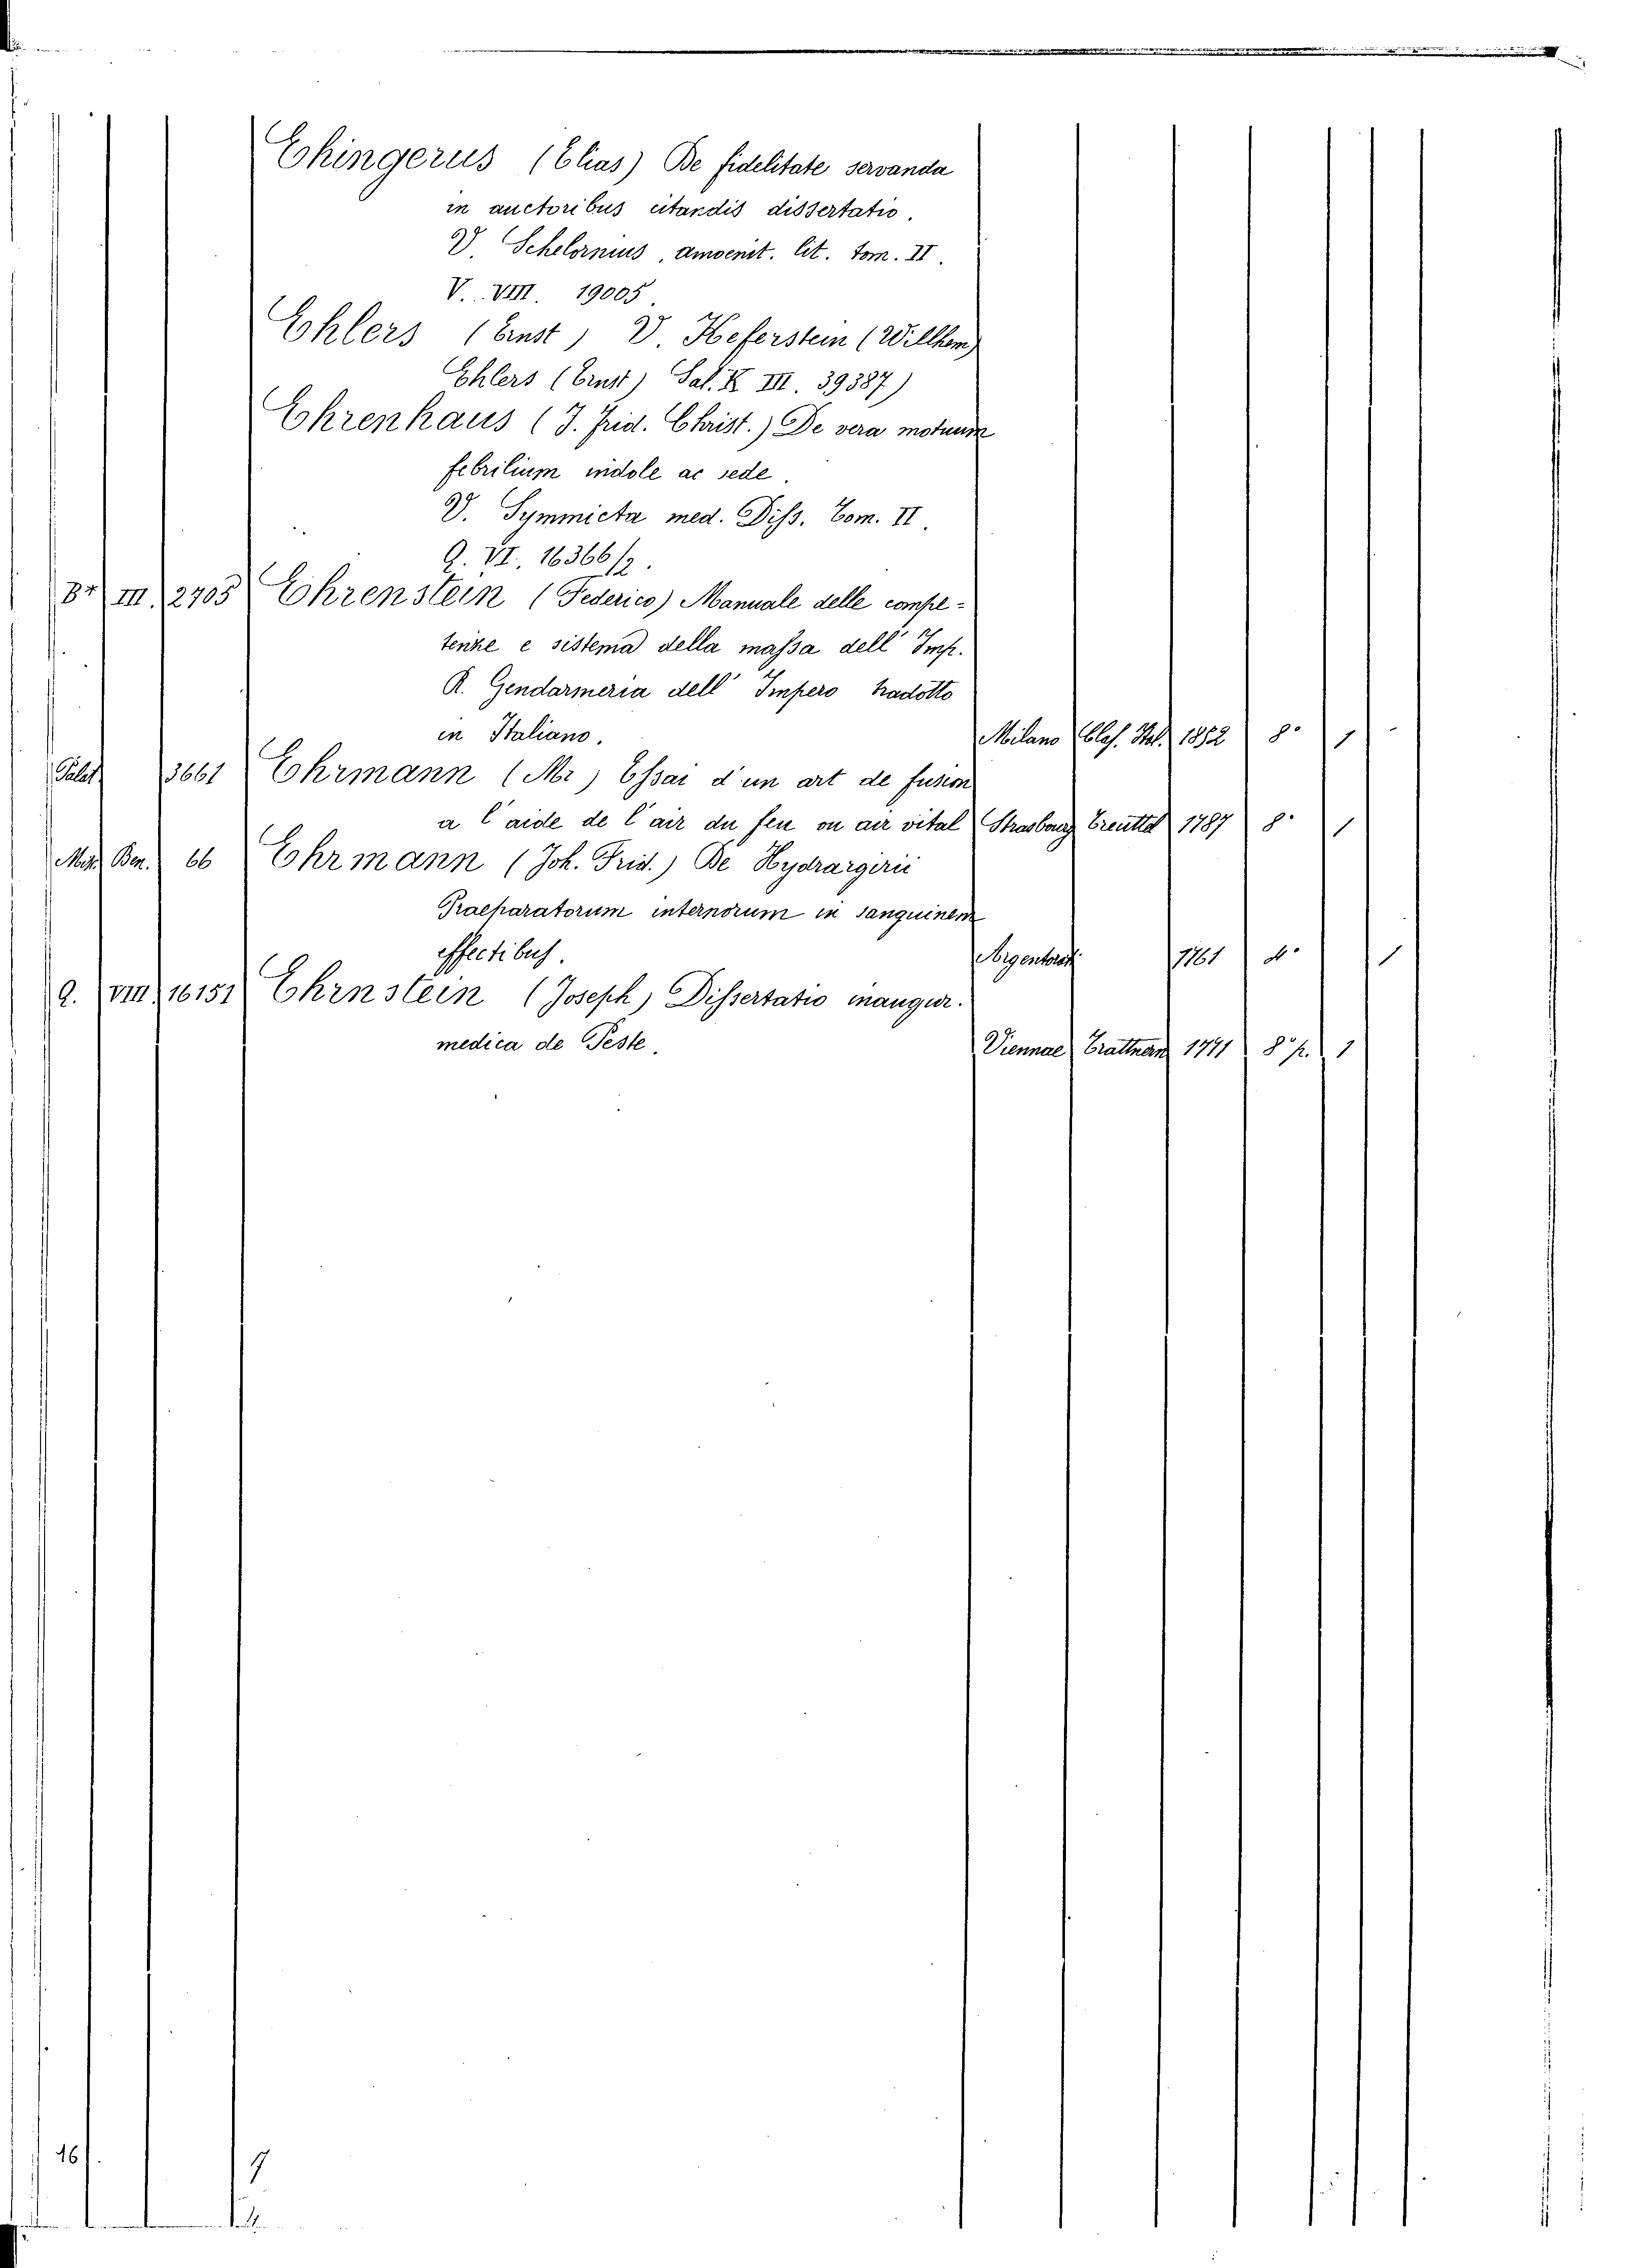 Ehingerus (Elias) De fidelitate servanda
in auctoribus citandis dissertatio.
V. Schelornius, amoenit. lit. tom. II.
V. VIII. 19005
Ehlers (Ernst) V. Keferstein (Willhem)
Ehlers (Ernst) Sal. K III. 39387)
Ehrenhaus (J. Frid. Christ.) De vera motuum
febrilium indole ac sede.
V. Symmicta med. Diss. Tom. II.
Q. VI. 16366/2.
Br III. 2705 Ehrenstein (Federico) Manuale delle compe-
tenze e sistema della massa dell' Imp.
R. Gendarmeria dell' Impero tradotto
in Italiano. Milano Clas. Ital. 1852 8° 1
Palat 3661 Ehrmann (Mr) Essai d'un art de fusion
a l'aide de l'air du feu ou air vital Strasbourg Treuttel 1787 8° 1
Ben. 66 Ehrmann (Joh. Frid.) De Hydrargirii
Praeparatorum internorum in sanguinem
effectibus. Argentorat. 1761 4° 1
Q. VIII 16151 Ehrnstein (Joseph) Dissertatio inaugur.
medica de Peste. Viennae Trattnern 1771 8° p. 1
16
9